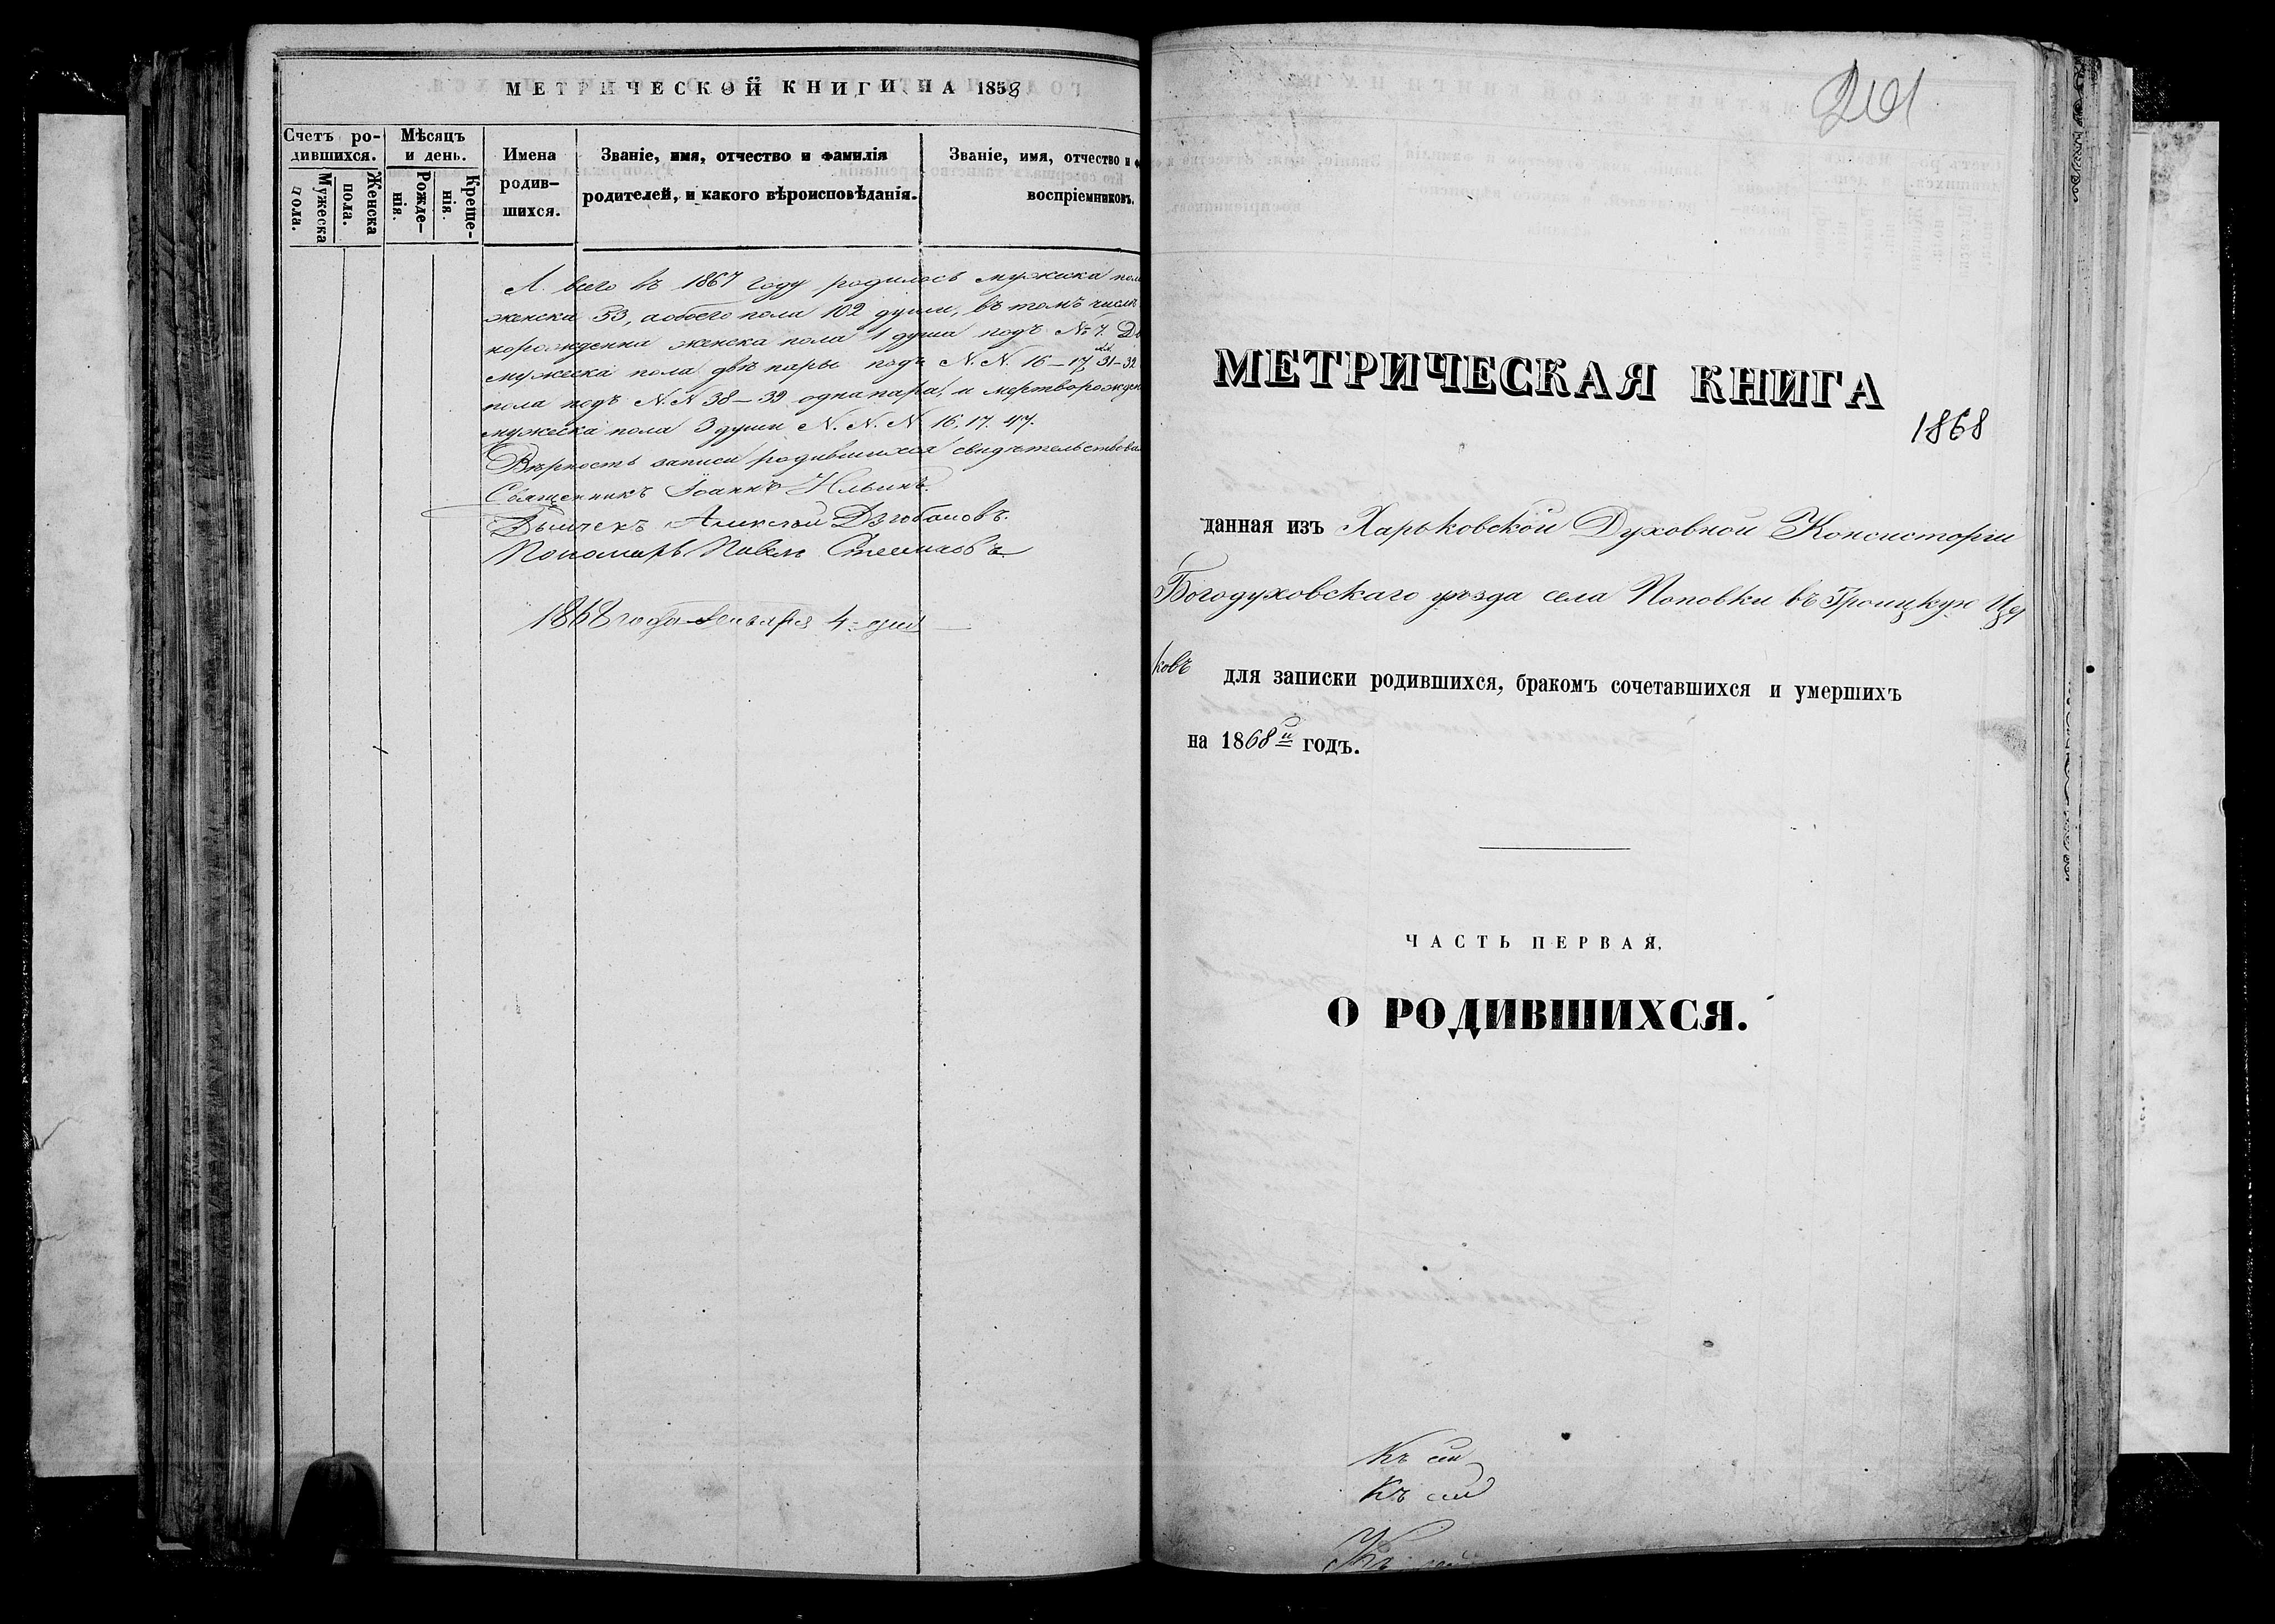 МЕТРИЧЕСКОЙ КНИГИ НА 1858
Счетъ ро-
дившихся.
Мужеска
пола.
Женска
пола.
Мѣсяцъ
и день.
Рожде-
нія.
Креще-
нія.
Имена
родив-
шихся.
Званіе, имя, отчество и фамилія
родителей, и какого вѣроисповѣданія.
Званіе, имя, отчество и ф
воспріемниковъ.
А всего въ 1867 году родилось мужска пола
женска 53, а обоего пола 102 души, въ томъ числѣ
норожденна женска пола 1 душа подъ № 7. Дв
мужеска пола двѣ пары подъ N. N. 16–17, 31–32
пола подъ N. N 38–39 одна пара, и мертворожден
мужеска пола 3 души N. N. N 16. 17. 47.
Вѣрность записи родившихся свидѣтельствова
Священникъ Іоаннъ Ильинъ.
Дьячекъ Алексѣй Дзюбановъ.
Пономарь Павелъ
1868 года Января 4 дня
201
МЕТРИЧЕСКАЯ КНИГА
1868
данная изъ Харьковской Духовной Консисторіи
Богодуховскаго уѣзда села Поповки въ Троицкую Цер
ковь для записки родившихся, бракомъ сочетавшихся и умершихъ
на 1868й годъ.
ЧАСТЬ ПЕРВАЯ.
О РОДИВШИХСЯ.
Къ сей
Къ сей
Къ сей